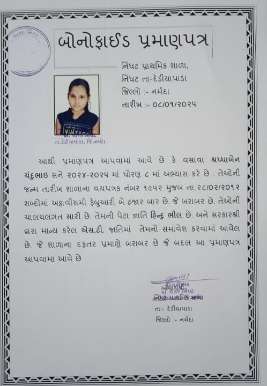 બોનોફાઈડ પ્રમાણપત્ર
નિઘટ પ્રાથમિક શાળા,
નિઘટ તા-દેડીયાપાડા
જિલ્લો - નર્મદા
તારીખ :- ૦૮/૦૧/૨૦૨૫
આથી પ્રમાણપત્ર આપવામાં આવે છે કે વસાવા શ્રધ્ધાબેન
ચંદુભાઇ સને ૨૦૨૪-૨૦૨૫ માં ધોરણ ૮ માં અભ્યાસ કરે છે. તેઓની
જન્મ તારીખ શાળાના વયપત્રક નંબર ૧૯૫૨ મુજબ તા.૨૮/૦૨/૨૦૧૨
શબ્દોમાં અઠ્ઠાવીસમી ફેબ્રુઆરી બે હજાર બાર છે. જે બરાબર છે. તેઓની
ચાલચલગત સારી છે તેમની પેટા જાતિ હિન્દુ ભીલ છે. અને સરકારશ્રી
દ્વારા માન્ય કરેલ એસ.ટી. જાતિમાં તેમનો સમાવેશ કરવામાં આવેલ
છે જે શાળાના દફતર પ્રમાણે બરાબર છે જે બદલ આ પ્રમાણપત્ર
આપવામાં આવે છે
નિઘટ પ્રાથમિક શાળા
તા- દેડીયાપાડા
જિલ્લો - નર્મદા